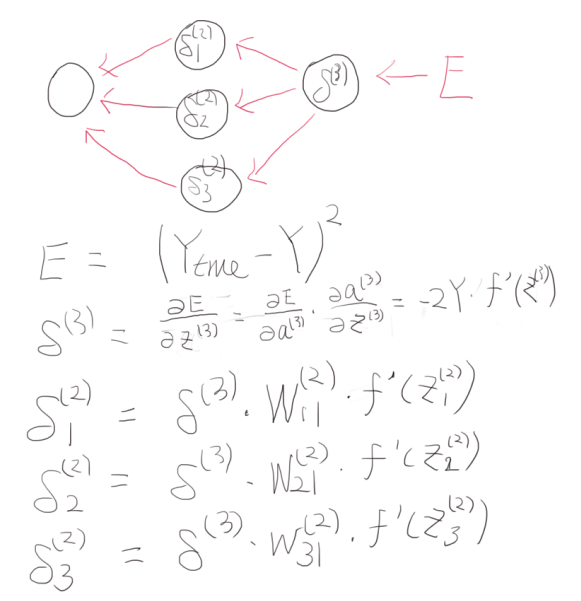 δ₁⁽²⁾
δ₂⁽²⁾
δ₃⁽²⁾
δ⁽³⁾
E
E = (Y_true - Y)²
δ⁽³⁾ = ∂E/∂z⁽³⁾ = ∂E/∂a⁽³⁾ · ∂a⁽³⁾/∂z⁽³⁾ = -2Y · f'(z⁽³⁾)
δ₁⁽²⁾ = δ⁽³⁾ · W₁₁⁽²⁾ · f'(Z₁⁽²⁾)
δ₂⁽²⁾ = δ⁽³⁾ · W₂₁⁽²⁾ · f'(Z₂⁽²⁾)
δ₃⁽²⁾ = δ⁽³⁾ · W₃₁⁽²⁾ · f'(Z₃⁽²⁾)